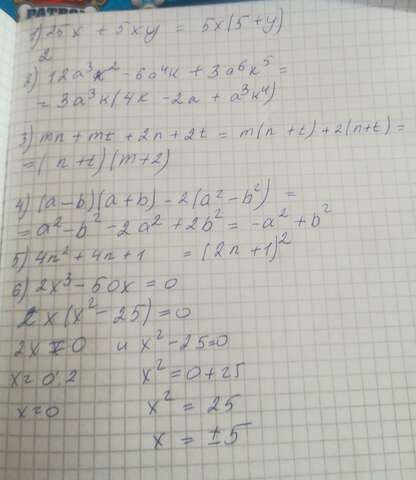 PATROL
1) 25x + 5xy = 5x(5+y)
2
2) 12a³k² - 6a⁴k + 3a⁶k⁵ =
= 3a³k(4k - 2a + a³k⁴)
3) mn + mt + 2n + 2t = m(n+t) + 2(n+t) =
= (n+t)(m+2)
4) (a-b)(a+b) - 2(a² - b²) =
= a² - b² - 2a² + 2b² = -a² + b²
5) 4n² + 4n + 1 = (2n+1)²
6) 2x³ - 50x = 0
2x(x² - 25) = 0
2x = 0 и x² - 25 = 0
x = 0:2 x² = 0 + 25
x = 0 x² = 25
x = ±5